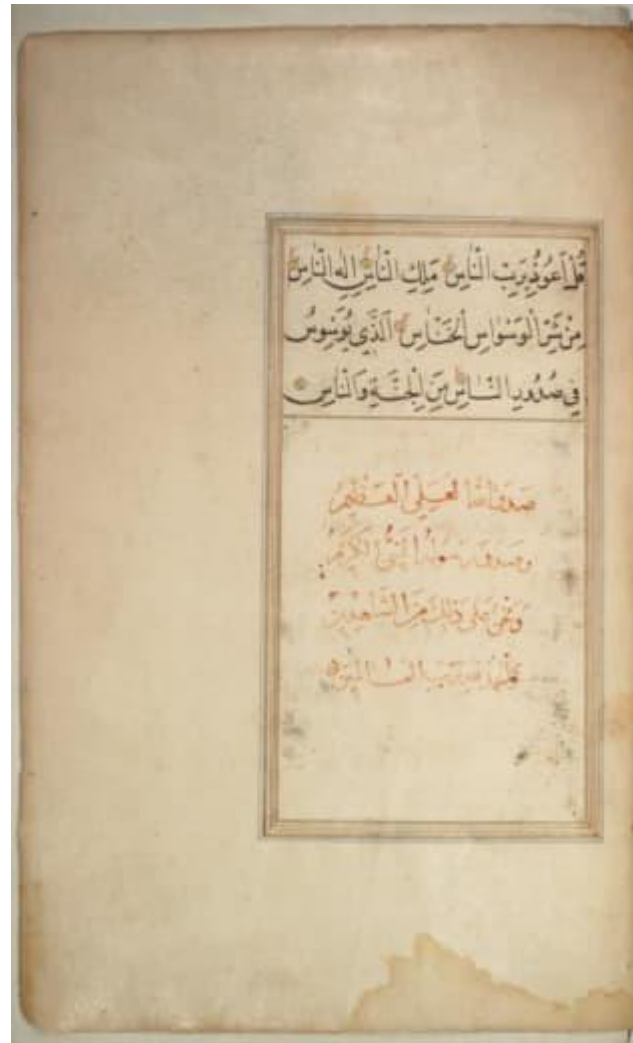 قُلْ اَعُوذُ بِرَبِّ النَّاسِ مَلِكِ النَّاسِ اِلٰهِ النَّاسِ
مِنْ شَرِّ الْوَسْوَاسِ الْخَنَّاسِ اَلَّذِي يُوَسْوِسُ
فِي صُدُورِ النَّاسِ مِنَ الْجِنَّةِ وَالنَّاسِ
صدق الله العلي العظيم
وصدق رسوله النبي الكريم
ونحن على ذلك من الشاهدين
والحمد لله رب العالمين